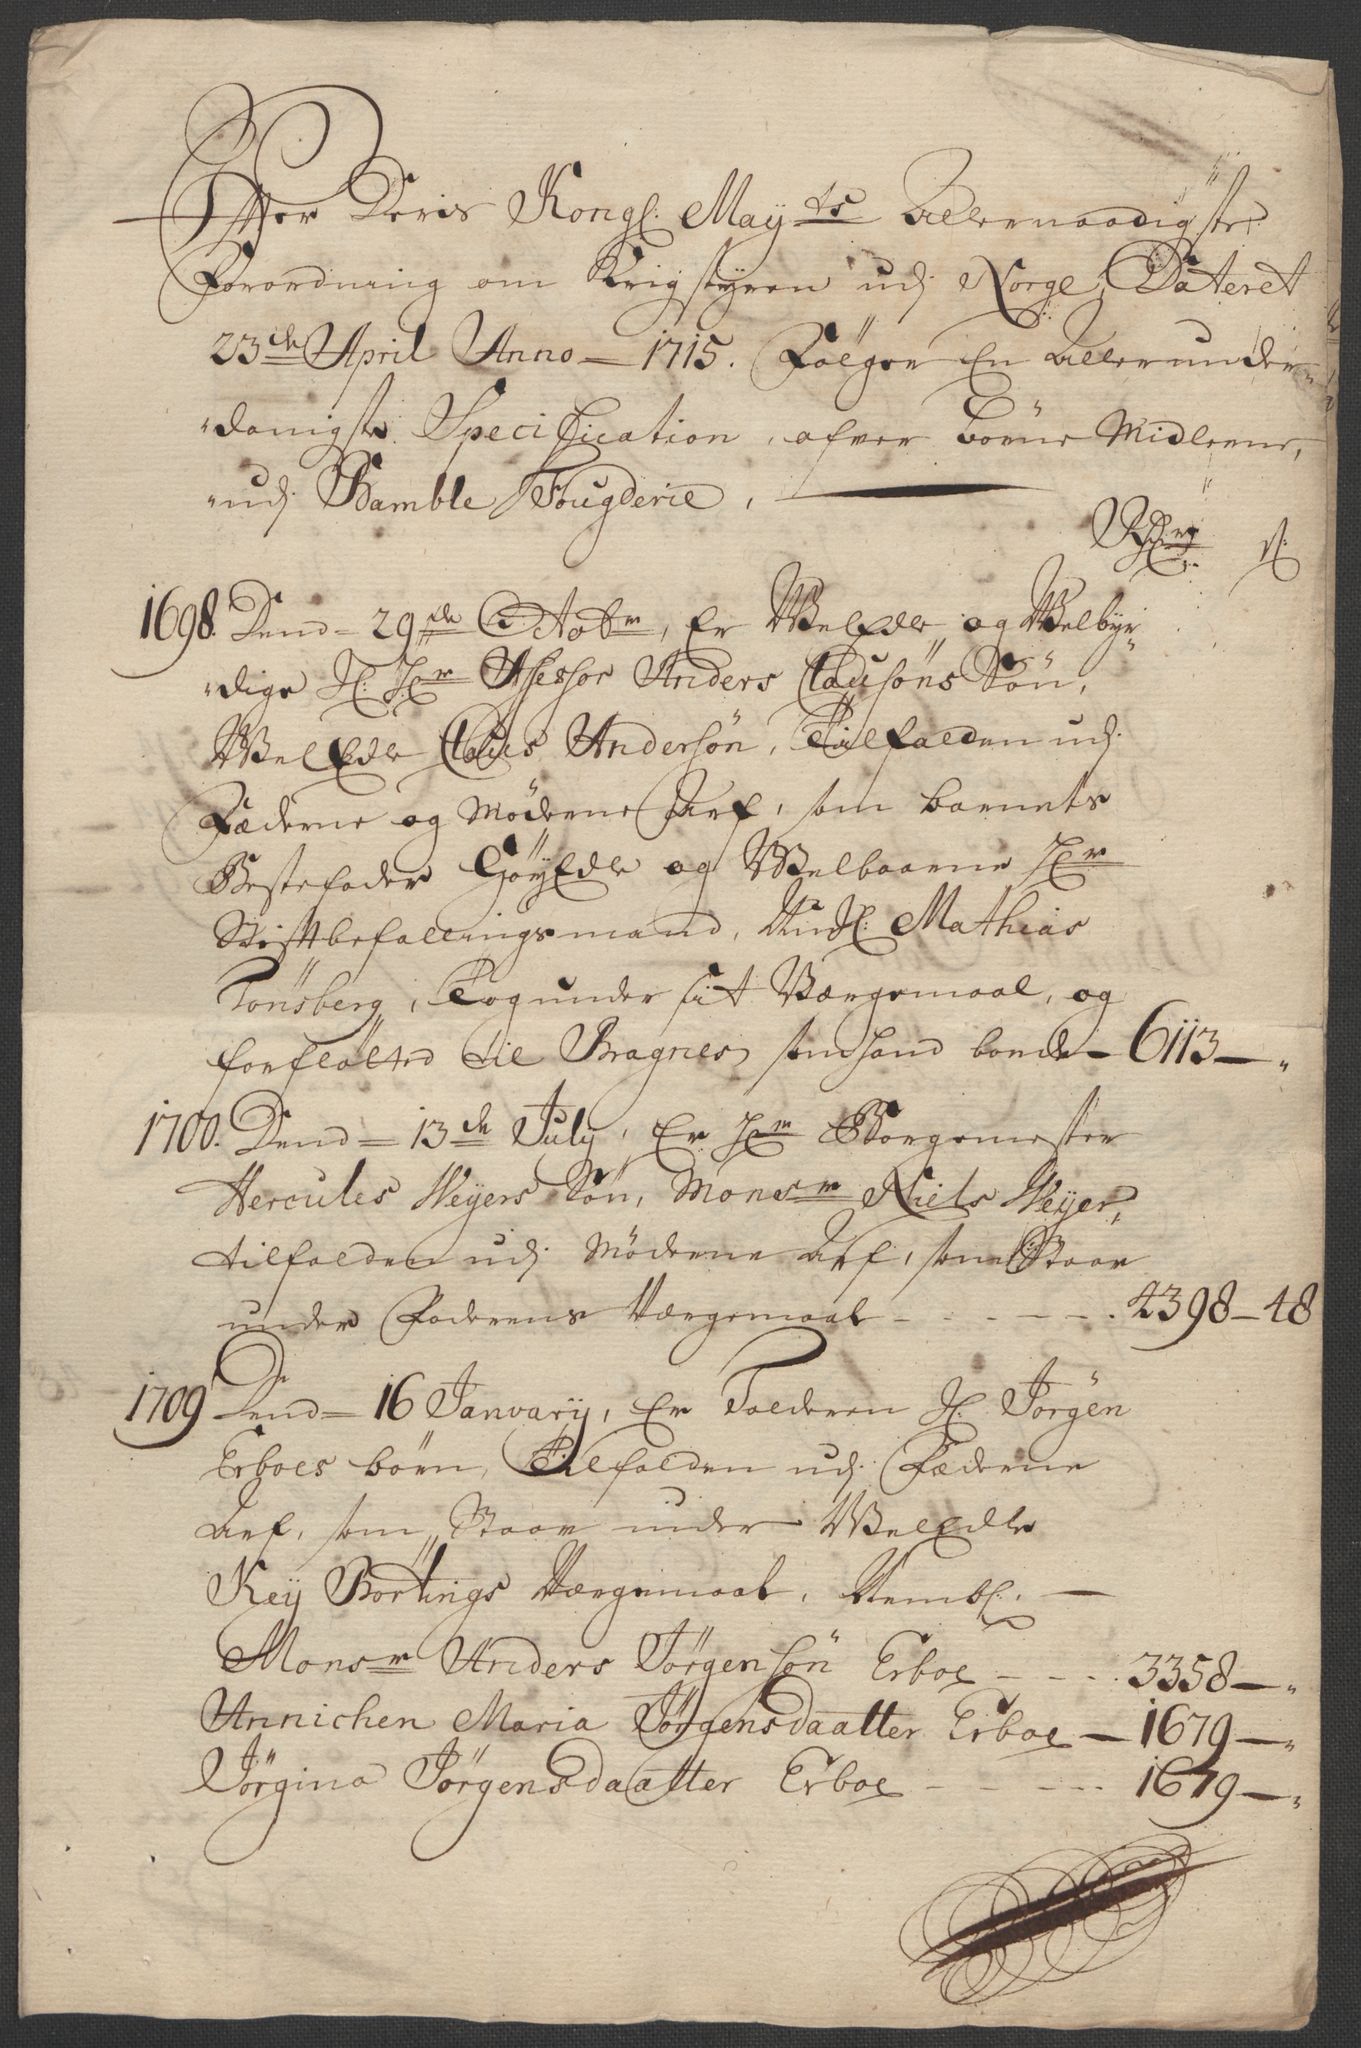 Efter Deris Kongl. Mayts Allernaadigste
Forordning om Krigstyren udj Norge, Dateret
23de April Anno 1715. Følger En Allerunder-
danigste Specification, ofver börne Midlerne,
udj Bamble Fougderie,
Rdr ß:
1698. Dend 29de Octobr, Er WelEdle og Welbyr-
dige Sl: Hr Assessor Anders Clausöns Sön,
WelEdle Claus Andersön, Tilfalden udj
Fæderne og Møderne Arf, som barnets
Bestefader HöyEdle og Welbaarne Hr
Stiftbefallingsmand, Nu Sl: Mathias
Tonsberg, Tog under sit Wærgemaal, og
forfløtted til Bragnes, som hand boede 6113 — "
1700. Dend 13de July, Er Hr Borgemester
Hercules Weyers Sön, Monsr Niels Weyer,
tilfalden udj Møderne Arf, som Staar
under Faderens Værgemaal - - - - 4398 — 48
1709 Dend 16 January, Er Tolderen Sl. Jørgen
Erboes börn, Tilfalden udj Fæderne
Arf, som Staar under WelEdle
Key Börtings Værgemaal, Nembl. —
Monsr Anders Jørgensön Erboe - - - 3358 — "
Annichen Maria Jørgensdaatter Erboe — 1679 — "
Jørgina Jørgensdaatter Erboe - - - - 1679 — "